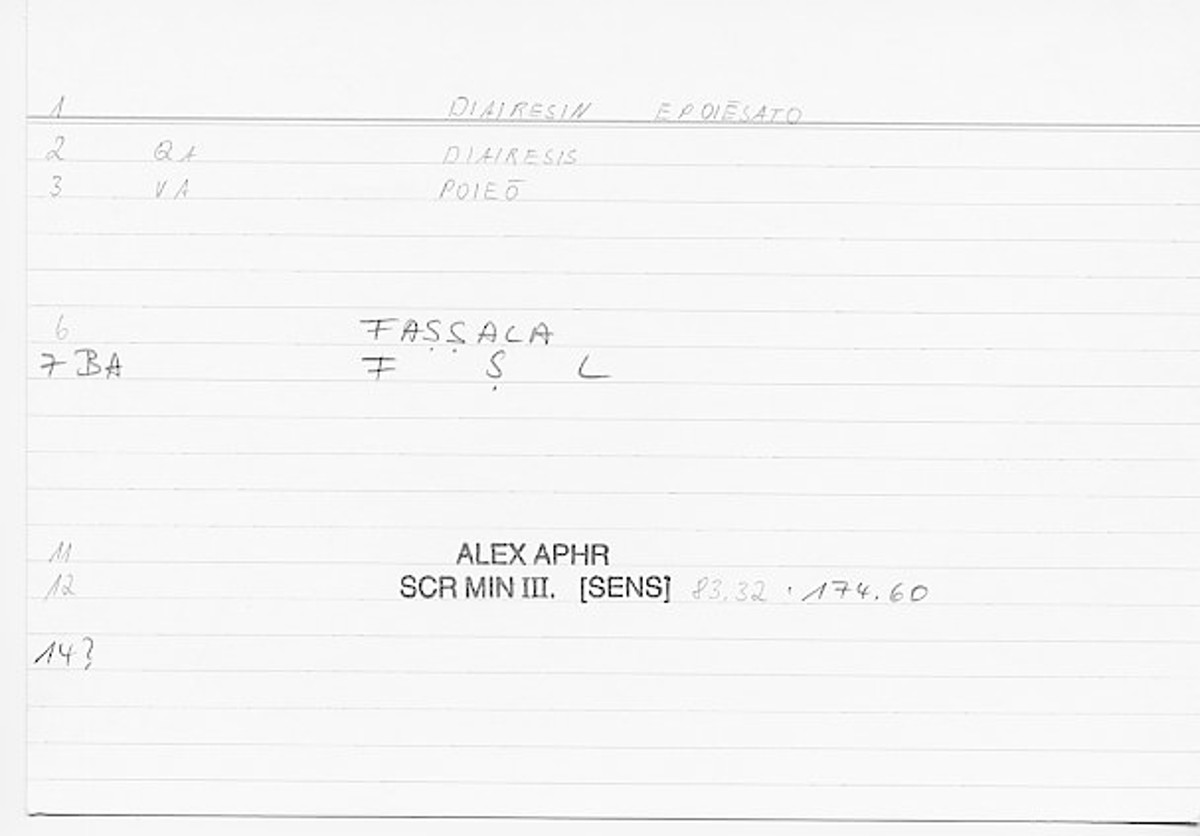 1 DIAIRESIN EPOIĒSATO
2 QA DIAIRESIS
3 VA POIEŌ
6 FAṢṢALA
7 BA F Ṣ L
11 ALEX APHR
12 SCR MIN III. [SENS] 83.32 · 174.60
14?